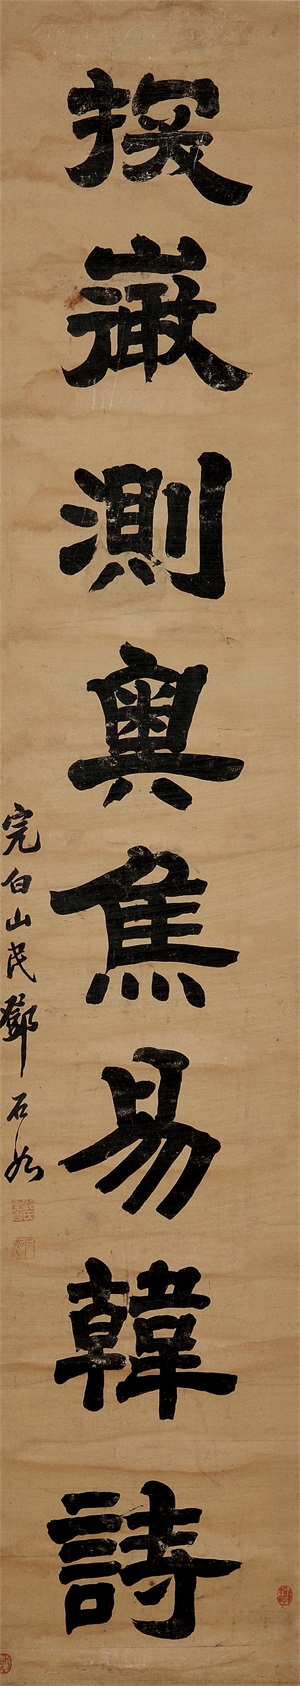 探微測奧焦易韓詩
完白山民鄧石如